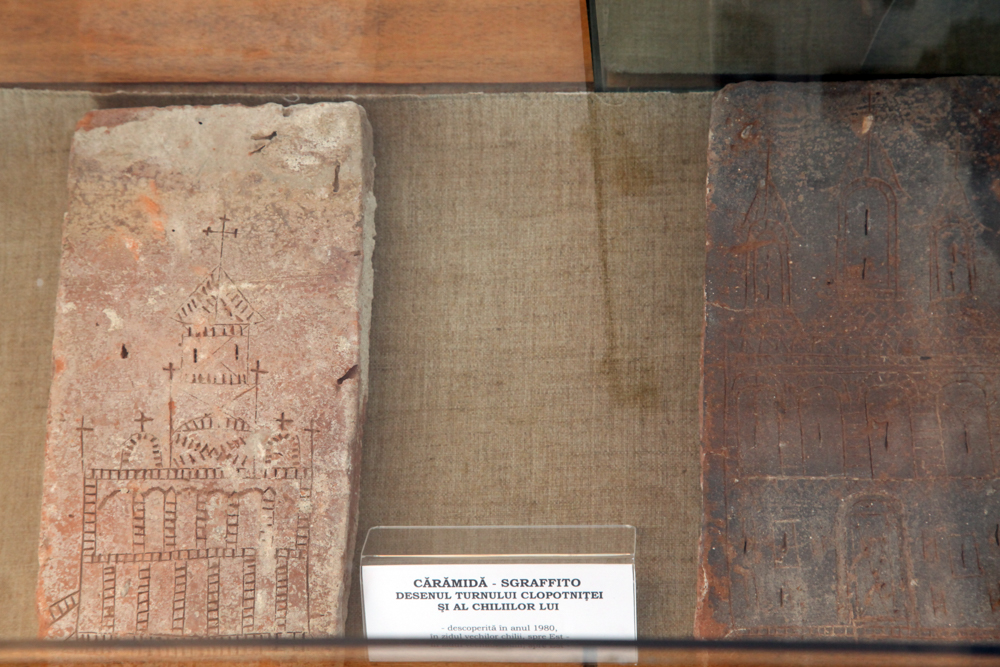 CĂRĂMIDĂ - SGRAFFITO
DESENUL TURNULUI CLOPOTNIȚEI
ȘI AL CHILIILOR LUI
- descoperită în anul 1980,
în zidul vechilor chilii, spre Est -